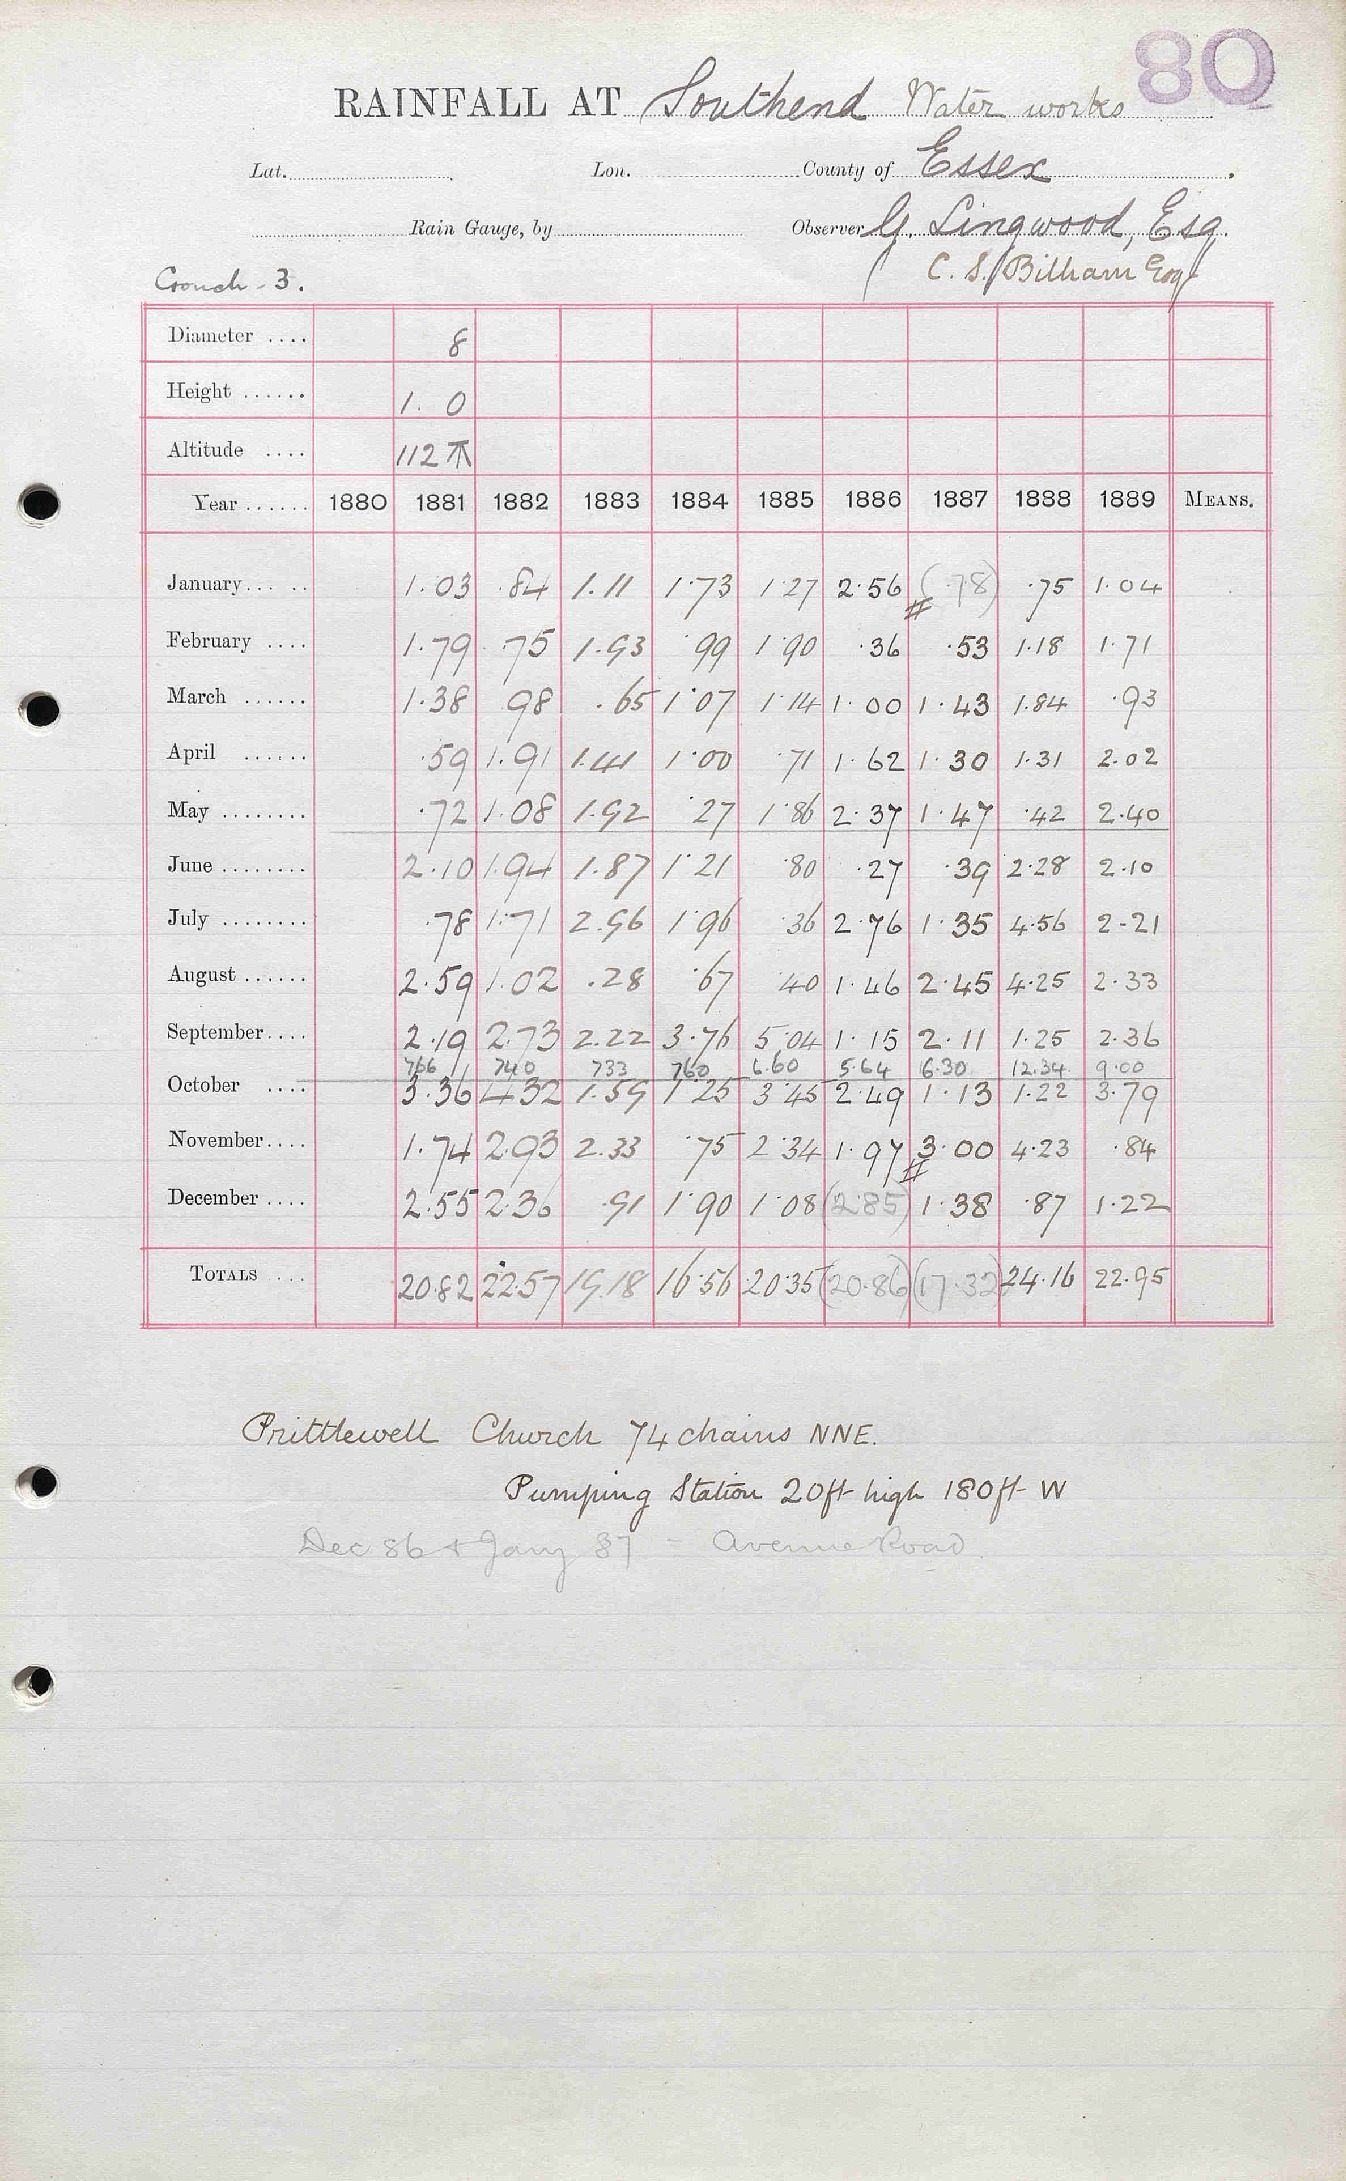 80
RAINFALL AT Southend Water works
Lat. Lon. County of Essex.
Rain Gauge, by Observer G. Lingwood, Esq.
C. S. Bilham Esq
Crouch - 3.
Diameter .... 8
Height ...... 1. 0
Altitude .... 112
Year ...... 1880 1881 1882 1883 1884 1885 1886 1887 1888 1889 MEANS.
January... .. 1.03 .84 1.11 1.73 1.27 2.56 (.78) .75 1.04
#
February .... 1.79 .75 1.93 .99 1.90 .36 .53 1.18 1.71
March ...... 1.38 .98 .65 1.07 1.14 1.00 1.43 1.84 .93
April ...... .59 1.91 1.41 1.00 .71 1.62 1.30 1.31 2.02
May ........ .72 1.08 1.92 .27 1.86 2.37 1.47 .42 2.40
June ........ 2.10 1.94 1.87 1.21 .80 .27 .39 2.28 2.10
July ........ .78 1.71 2.96 1.96 .36 2.76 1.35 4.56 2.21
August ...... 2.59 1.02 .28 .67 .40 1.46 2.45 4.25 2.33
September.... 2.19 2.73 2.22 3.76 5.04 1.15 2.11 1.25 2.36
766 740 733 760 6.60 5.64 6.30 12.34 9.00
October .... 3.36 4.32 1.59 1.25 3.45 2.49 1.13 1.22 3.79
November.... 1.74 2.93 2.33 .75 2.34 1.97 3.00 4.23 .84
#
December .... 2.55 2.36 .91 1.90 1.08 (2.85) 1.38 .87 1.22
TOTALS ... 20.82 22.57 19.18 16.56 20.35 (20.86) (17.32) 24.16 22.95
Prittlewell Church 74 chains NNE.
Pumping Station 20ft high 180ft W
Dec 86 & Jany 87 - Avenue Road